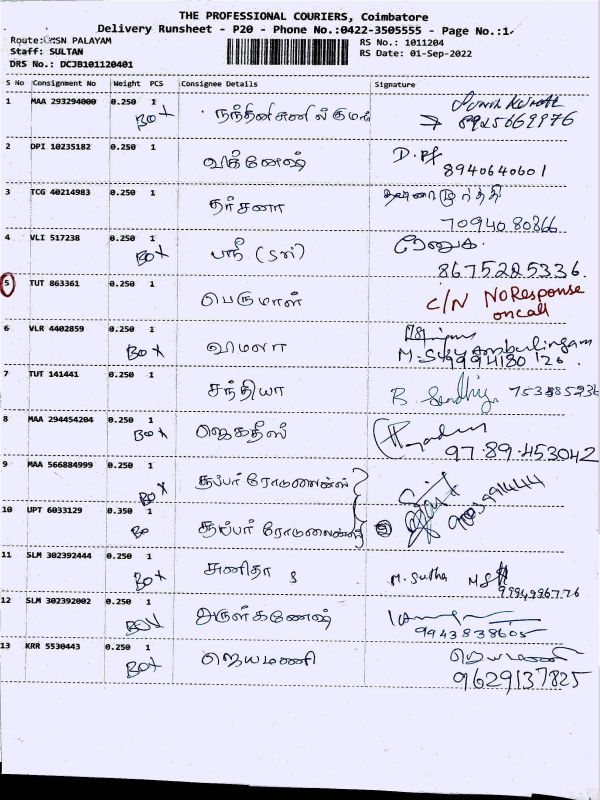 THE PROFESSIONAL COURIERS, Coimbatore
Delivery Runsheet - P20 - Phone No.:0422-3505555 - Page No.:1
Route: MSN PALAYAM
Staff: SULTAN
DRS No.: DCJB101120401
RS No.: 1011204
RS Date: 01-Sep-2022
S No Consignment No Weight PCS Consignee Details Signature
1 MAA 293294000 0.250 1 BOX
8925669976
2 DPI 10235182 0.250 1 விக்னேஷ்
8940640601
3 TCG 40214983 0.250 1 தர்சனா
7094080866
4 VLI 517238 0.250 1 BOX ஸ்ரீ (Sri) ரேணுகா
8675225336.
5 TUT 863361 0.250 1 பெருமாள் C/N No Response
on call
6 VLR 4402859 0.250 1 BOX விமலா
9994180126
7 TUT 141441 0.250 1 சந்தியா
8 MAA 294454204 0.250 1 BOX ஜெகதீஸ்
97-89-453042
9 MAA 566884999 0.250 1 BOX
10 UPT 6033129 0.350 1 BO
11 SLM 302392444 0.250 1 BOX சுனிதா S M. Sutha
12 SLM 302392002 0.250 1 BOX அருள்கணேஷ்
9943838605
13 KRR 5530443 0.250 1 BOX ஜெயமணி ஜெயமணி
9629137825